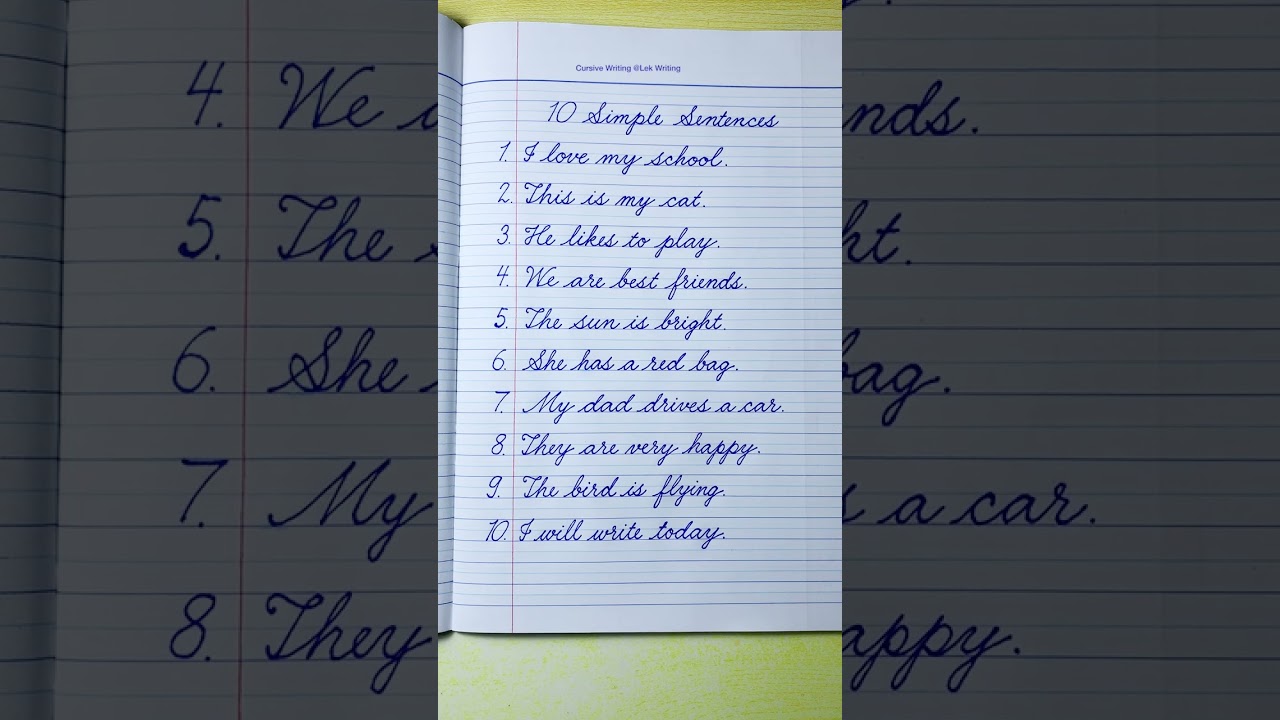 Cursive Writing @Lek Writing
10 Simple Sentences
1. I love my school.
2. This is my cat.
3. He likes to play.
4. We are best friends.
5. The sun is bright.
6. She has a red bag.
7. My dad drives a car.
8. They are very happy.
9. The bird is flying.
10. I will write today.